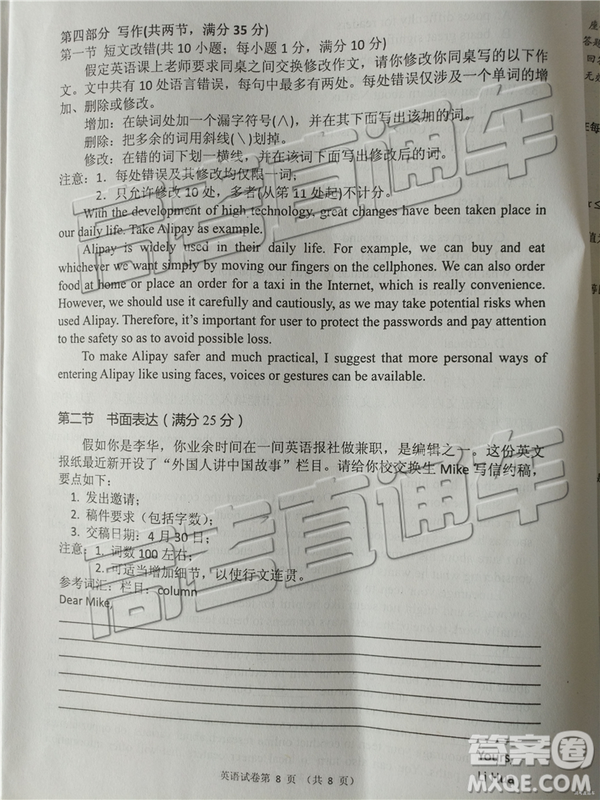 第四部分 写作(共两节，满分35分)
第一节 短文改错(共10小题；每小题1分，满分10分)
假定英语课上老师要求同桌之间交换修改作文，请你修改你同桌写的以下作
文。文中共有10处语言错误，每句中最多有两处。每处错误仅涉及一个单词的增
加、删除或修改。
增加：在缺词处加一个漏字符号(∧)，并在其下面写出该加的词。
删除：把多余的词用斜线(\)划掉。
修改：在错的词下划一横线，并在该词下面写出修改后的词。
注意：1．每处错误及其修改均仅限一词；
2．只允许修改10处，多者(从第11处起)不计分。
With the development of high technology, great changes have been taken place in
our daily life. Take Alipay as example.
Alipay is widely used in their daily life. For example, we can buy and eat
whichever we want simply by moving our fingers on the cellphones. We can also order
food at home or place an order for a taxi in the Internet, which is really convenience.
However, we should use it carefully and cautiously, as we may take potential risks when
used Alipay. Therefore, it's important for user to protect the passwords and pay attention
to the safety so as to avoid possible loss.
To make Alipay safer and much practical, I suggest that more personal ways of
entering Alipay like using faces, voices or gestures can be available.
第二节 书面表达（满分25分）
假如你是李华，你业余时间在一间英语报社做兼职，是编辑之一。这份英文
报纸最近新开设了“外国人讲中国故事”栏目。请给你校交换生Mike写信约稿，
要点如下：
1. 发出邀请；
2. 稿件要求（包括字数）；
3. 交稿日期：4月30日；
注意：1. 词数100左右；
2. 可适当增加细节，以使行文连贯。
参考词汇：栏目：column
Dear Mike,
Yours,
Li Hua
英语试卷第 8 页 （共 8 页）
高考直通车
高考直通车
答案圈